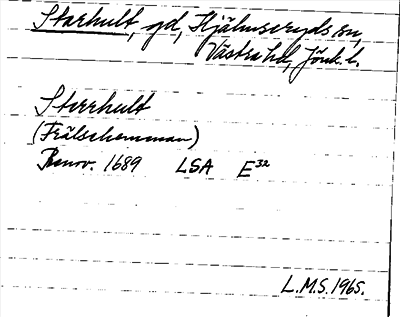 Starhult, gd, Hjälmseryds sn,
Västra hd, Jönk. l.
Sterrhult
(Frälsehemman)
Renov. 1689 LSA E³²
L.M.S. 1965.